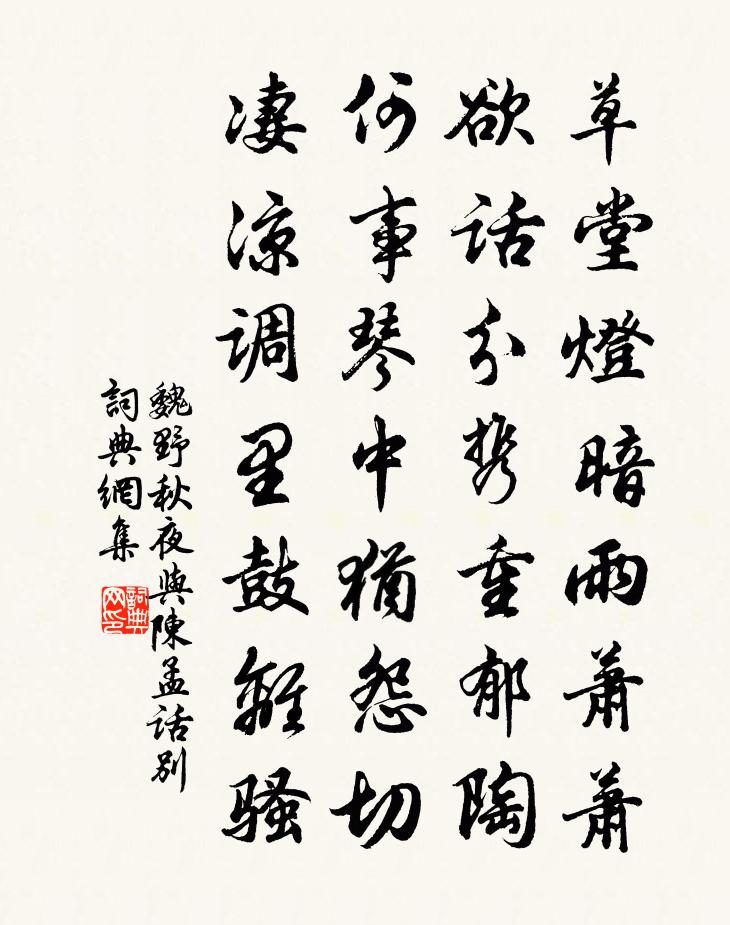 草堂燈暗雨蕭蕭
欲話分携重郁陶
何事琴中猶怨切
凄涼調里鼓離騷
魏野秋夜與陳孟話别
詞典網集
詞典
网印